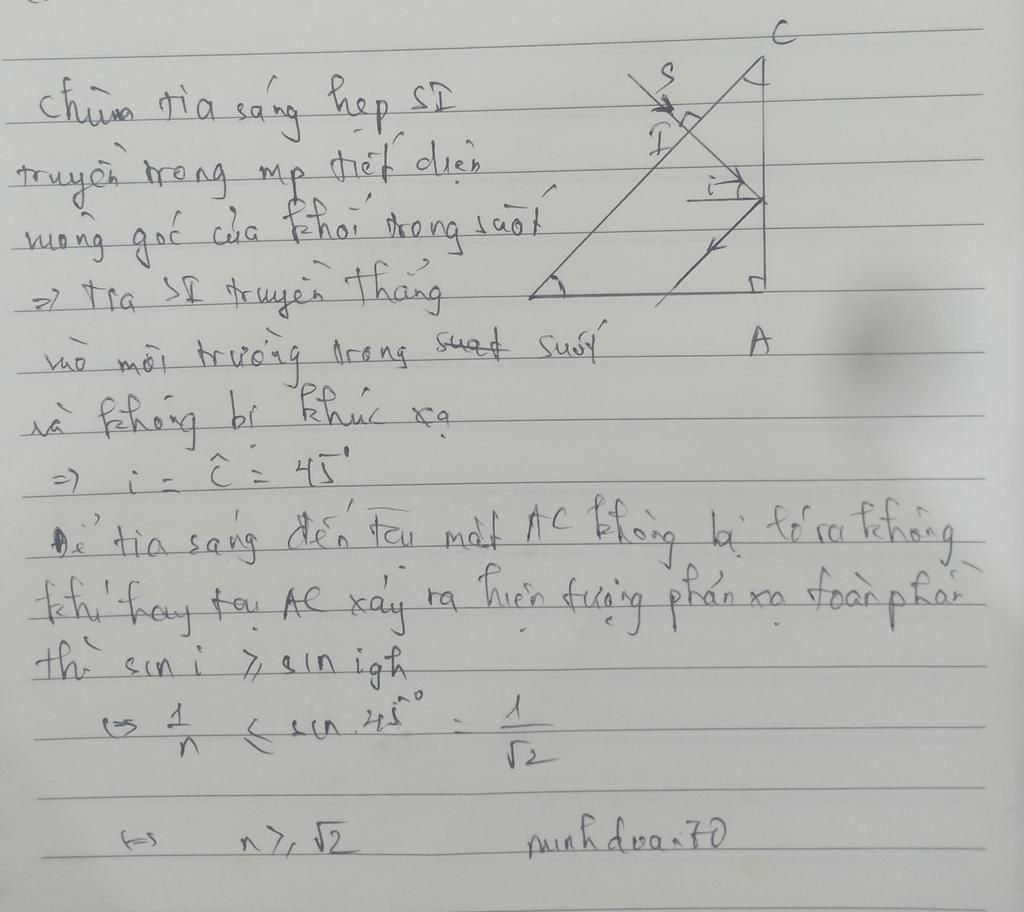 C
Chùm tia sáng hẹp SI
S
I
truyền trong mp tiết diện
i
vuông góc của khối trong suốt
=> tia SI truyền thẳng
vào môi trường trong suốt
A
và không bị khúc xạ
=> i = Ĉ = 45°
Để tia sáng đến tại mặt AC không bị ló ra không
khí hay tại AC xảy ra hiện tượng phản xạ toàn phần
thì sin i ≥ sin igh
⇔ 1/n ≤ sin 45° = 1/√2
⇔ n ≥ √2
minhdoan70